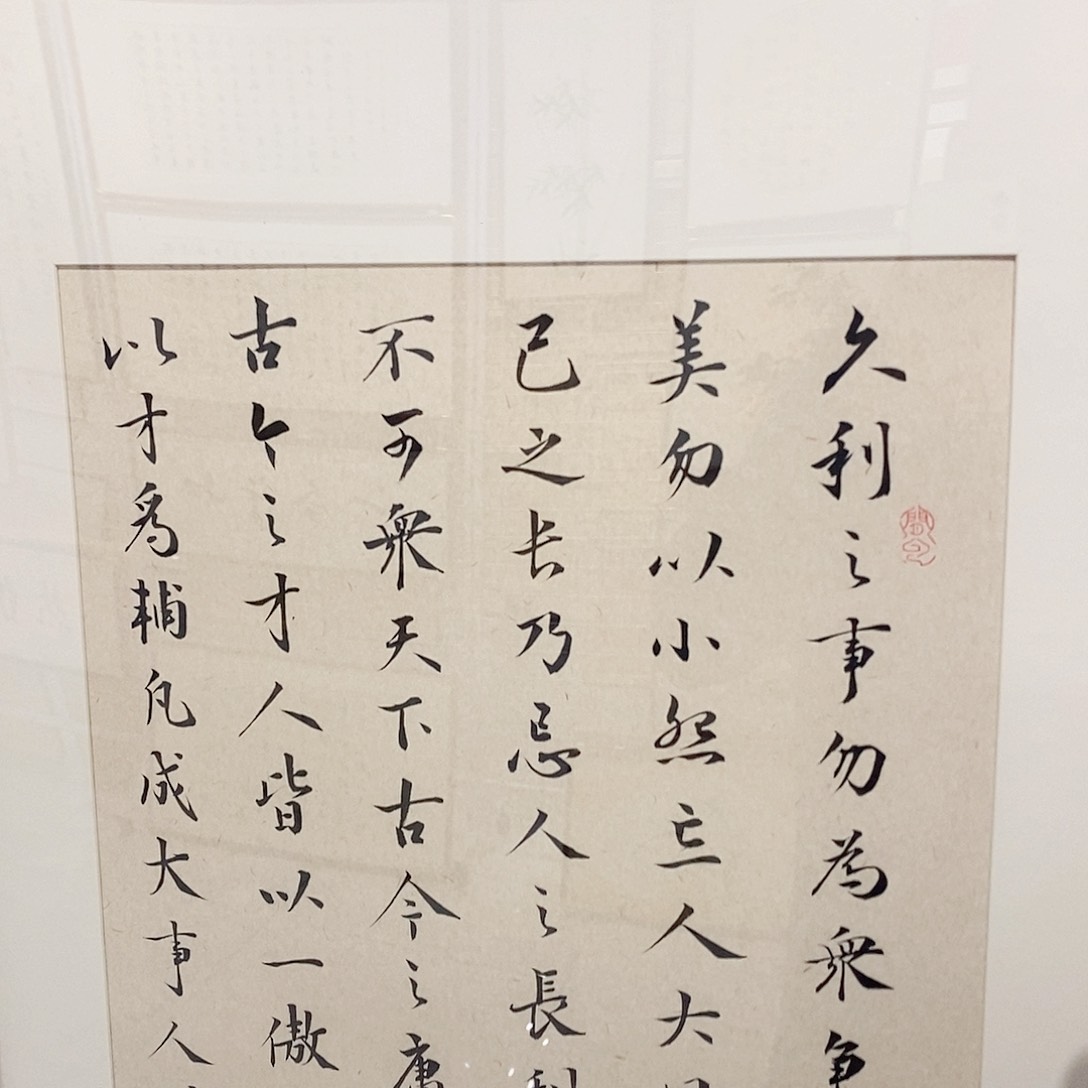 久利之事勿為衆争
美勿以小怨忘人大恩
己之长乃忌人之長利
不可衆天下古今之庸
古今之才人皆以一傲
以才爲輔凡成大事人